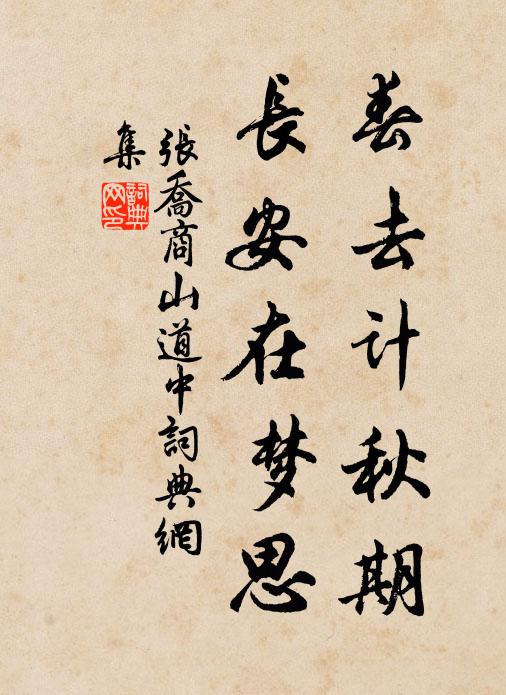 春去计秋期
長安在梦思
張喬商山道中詞典網
集
詞典
网印